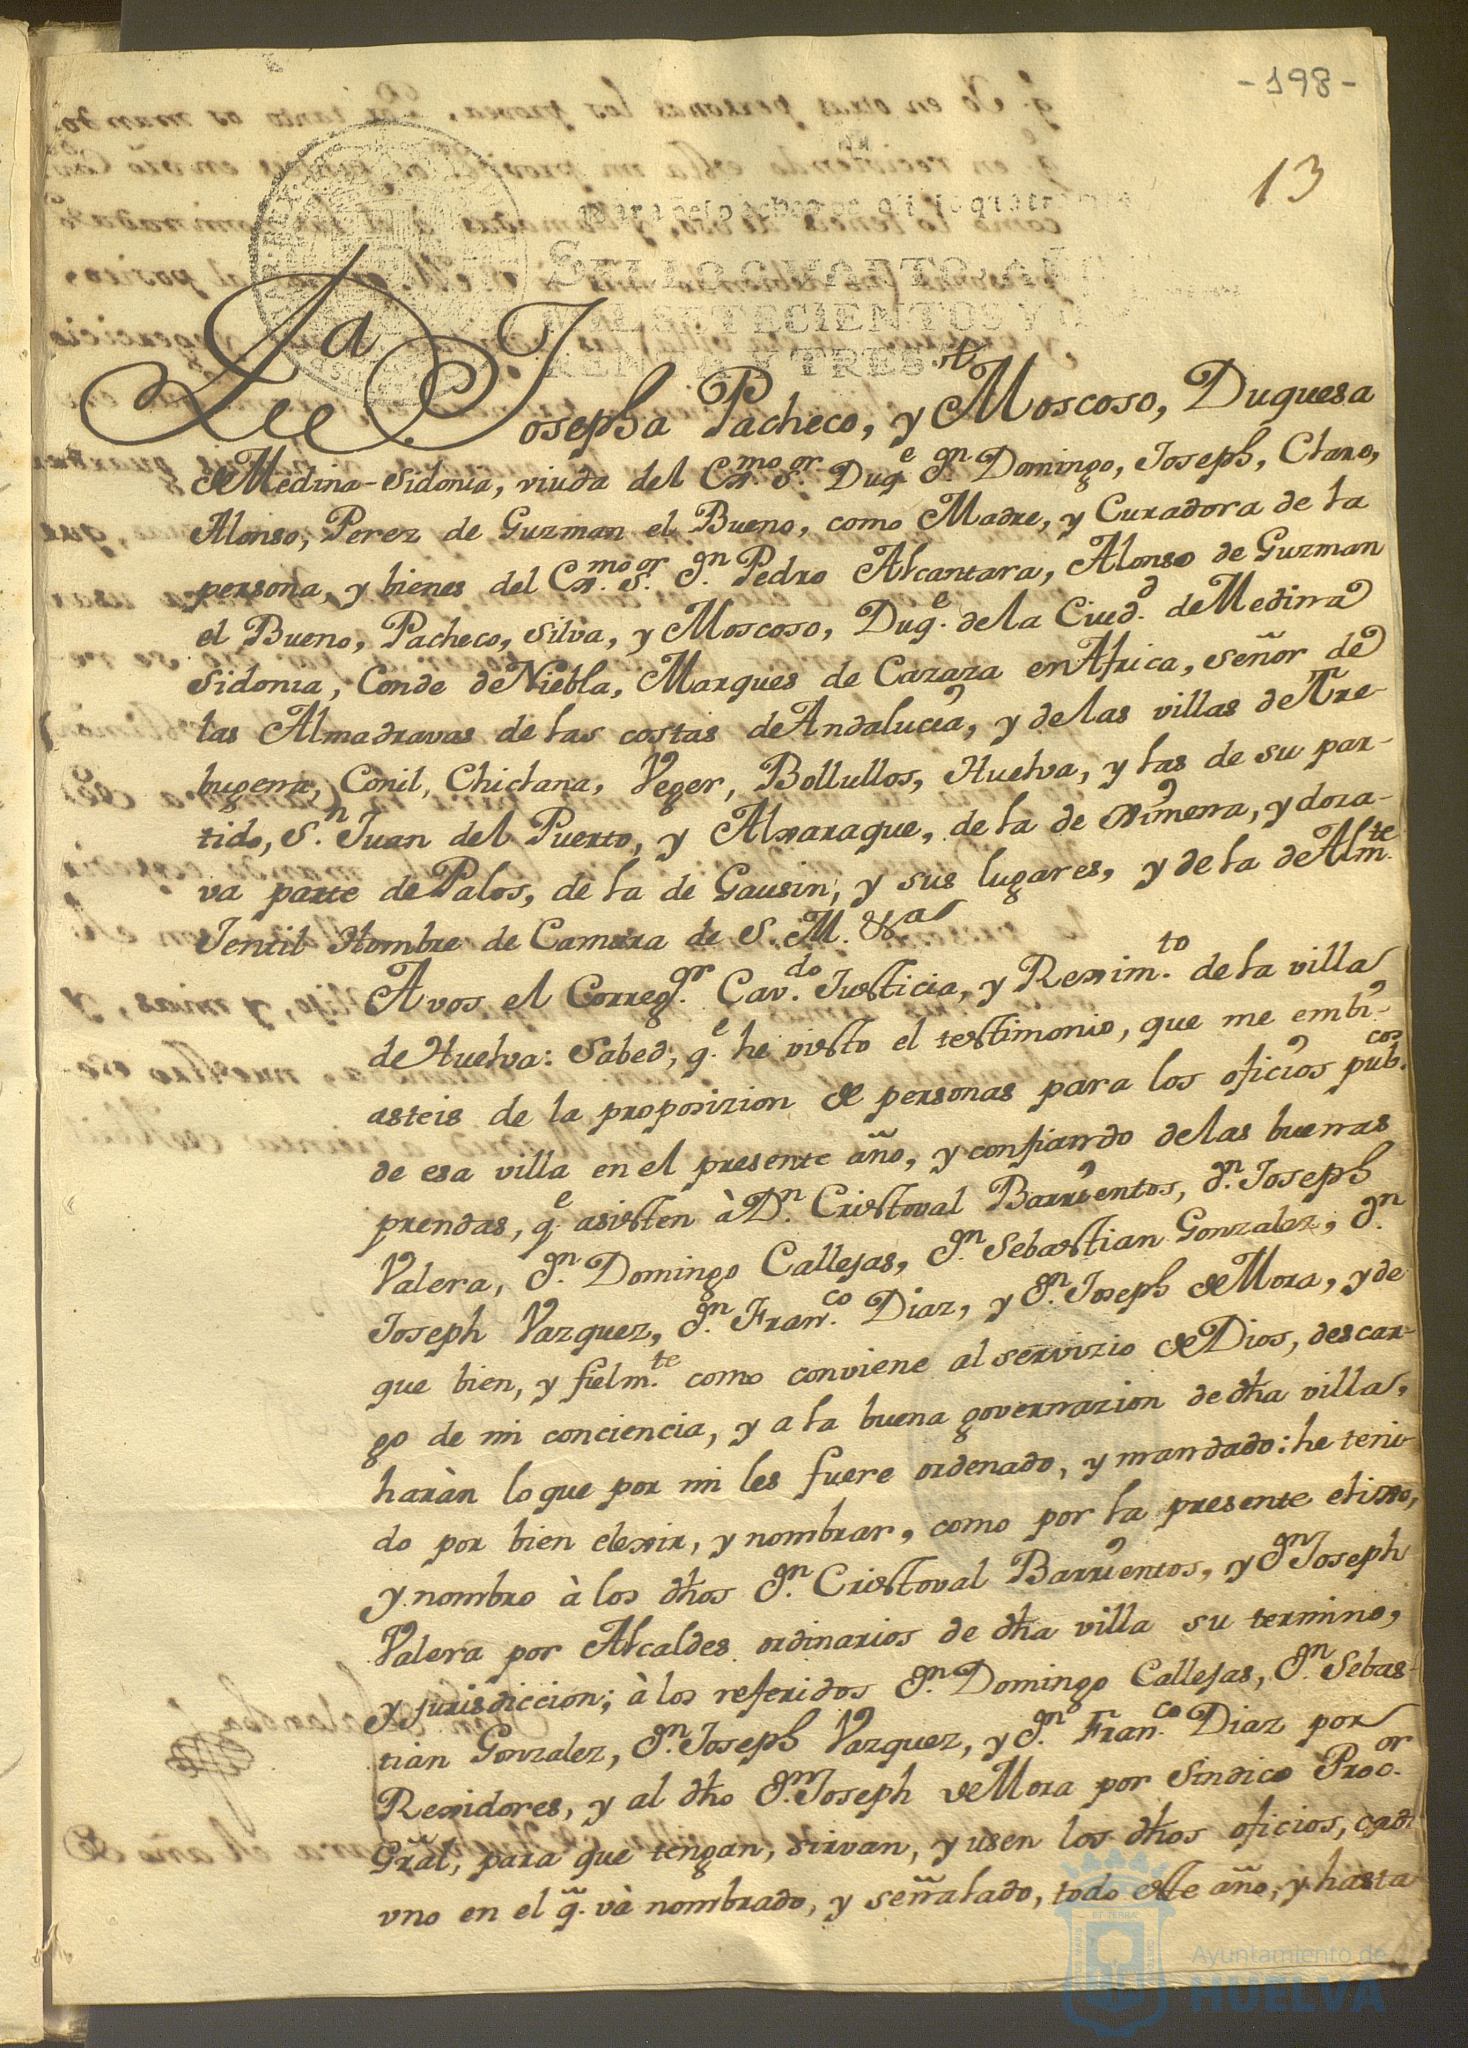 -198-
13
SELLO QUARTO, AÑO
MIL SETECIENTOS Y QUA
RENTA Y TRES.
Dª Josepha Pacheco, y Moscoso, Duquesa
de Medina-Sidonia, viuda del Exmo. Sor. Duqe. Dn. Domingo, Joseph, Claro,
Alonso, Perez de Guzman el Bueno, como Madre, y Curadora de la
persona, y bienes del Exmo. Sor. Dn. Pedro Alcantara, Alonso de Guzman
el Bueno, Pacheco, Silva, y Moscoso, Duqe. de la Ciudd. de Medina
Sidonia, Conde de Niebla, Marques de Cazaza en Africa, señor de
las Almadravas de las costas de Andalucia, y de las villas de Tre-
bugena, Conil, Chiclana, Veger, Bollullos, Huelva, y las de su par-
tido, Sn. Juan del Puerto, y Alxaraque, de la de Ximena, y doza-
va parte de Palos, de la de Gausin, y sus lugares, y de la de Almte
Jentil Hombre de Camara de S. M. &as
A vos el Corregor. Cavdo. Justicia, y Reximto. de la villa
de Huelva: Sabed, qe. he visto el testimonio, que me embi-
asteis de la proposizion de personas para los oficios pubcos.
de esa villa en el presente año, y confiando de las buenas
prendas, qe. asisten à Dn. Cristoval Barrientos, Dn. Joseph
Valera, Dn. Domingo Callejas, Dn. Sebastian Gonzalez, Dn.
Joseph Vazquez, Dn. Franco. Diaz, y Dn. Joseph de Mora, y de
que bien, y fielmte. como conviene al servizio de Dios, descar-
go de mi conciencia, y a la buena governazion de dha villa,
haràn lo que por mi les fuere ordenado, y mandado: he teni-
do por bien elexir, y nombrar, como por la presente elixo,
y nombro à los dhos Dn. Cristoval Barrientos, y Dn. Joseph
Valera por Alcaldes ordinarios de dha villa su termino,
y jurisdiccion; à los referidos Dn. Domingo Callejas, Dn. Sebas-
tian Gonzalez, Dn. Joseph Vazquez, y Dn. Franco. Diaz por
Rexidores, y al dho Dn. Joseph de Mora por Sindico Procor.
Gral, para que tengan, sirvan, y usen los dhos oficios, cada
vno en el q. và nombrado, y señalado, todo este año, y hasta
Ayuntamiento de
HUELVA